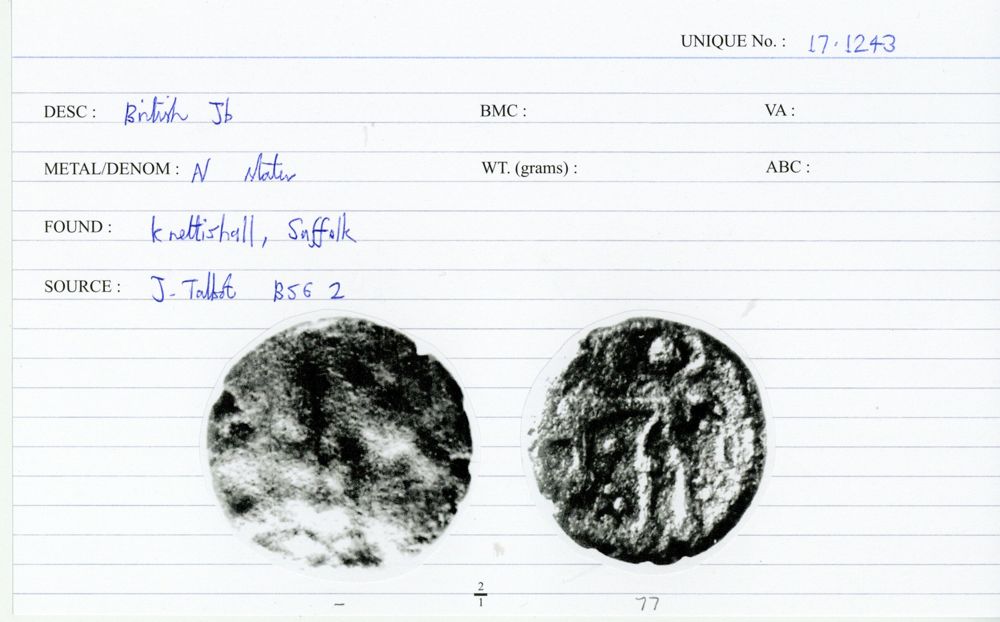 UNIQUE No. : 17.1243
DESC : British Jb BMC : VA :
METAL/DENOM : N Stater WT. (grams) : ABC :
FOUND : Knettishall, Suffolk
SOURCE : J. Talbot BSG 2
2
– 1 77